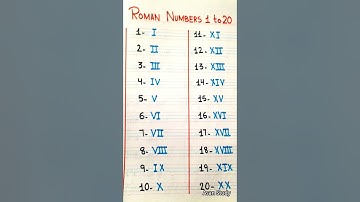 ROMAN NUMBERS 1 to 20
1- I
2- II
3- III
4- IV
5- V
6- VI
7- VII
8- VIII
9- IX
10- X
11- XI
12- XII
13- XIII
14- XIV
15- XV
16- XVI
17- XVII
18- XVIII
19- XIX
20- XX
Study